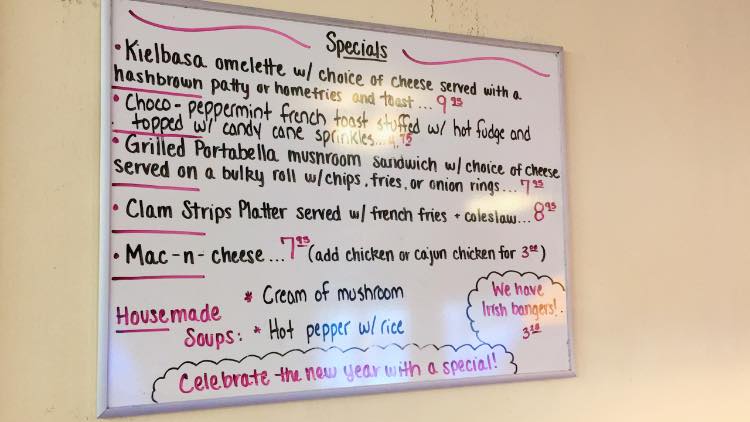 Specials
• Kielbasa omelette w/ choice of cheese served with a
hashbrown patty or homefries and toast... 9.95
• Choco-peppermint french toast stuffed w/ hot fudge and
topped w/ candy cane sprinkles...
• Grilled Portabella mushroom sandwich w/ choice of cheese
served on a bulky roll w/chips, fries, or onion rings... 7.95
• Clam Strips Platter served w/ french fries + coleslaw... 8.95
• Mac-n-cheese... 7.95 (add chicken or cajun chicken for 3.00)
Housemade
Soups:
* Cream of mushroom
* Hot pepper w/ rice
We have
Irish bangers!
Celebrate the new year with a special!